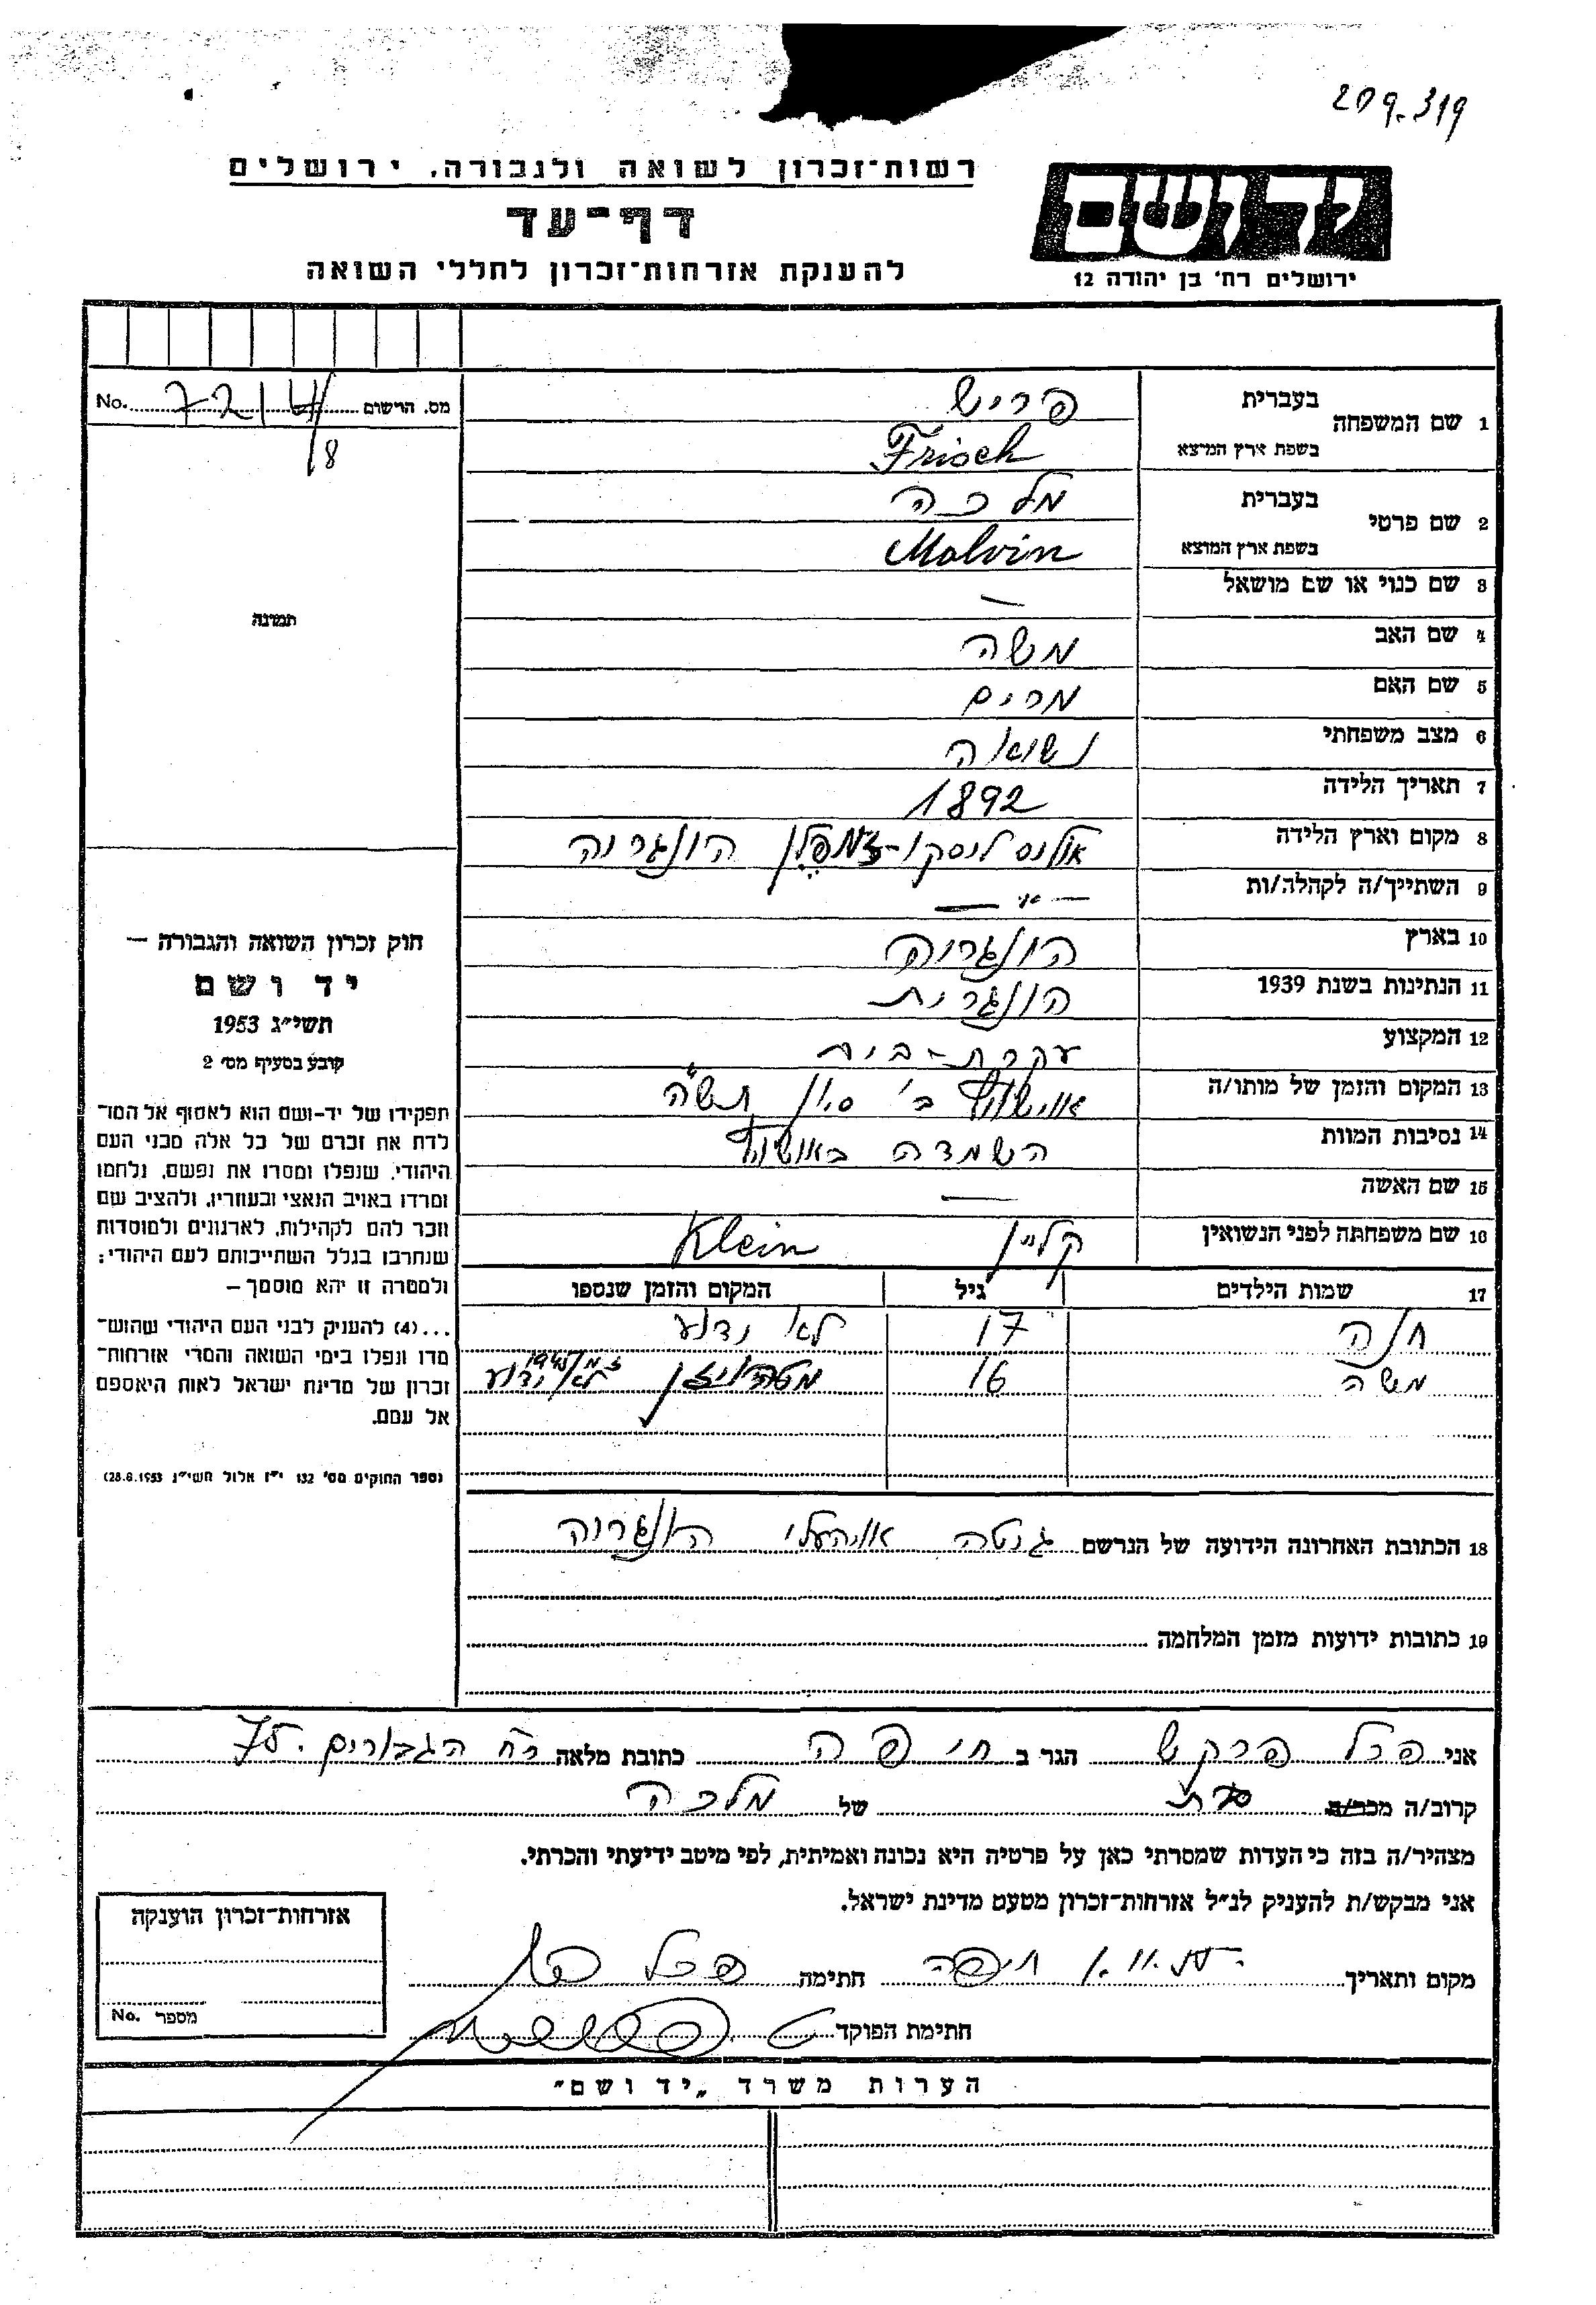 209.319
רשות־זכרון לשואה ולגבורה, ירושלים
יד ושם
דף־עד
ירושלים רח' בן יהודה 12
להענקת אזרחות־זכרון לחללי השואה
מס. הרשום 7214/8 No.
תמונה
חוק זכרון השואה והגבורה —
יד ושם
תשי״ג 1953
קובע בסעיף מס' 2
תפקידו של יד-ושם הוא לאסוף אל המו־
לדת את זכרם של כל אלה מבני העם
היהודי, שנפלו ומסרו את נפשם, נלחמו
ומרדו באויב הנאצי ובעוזריו, ולהציב שם
וזכר להם לקהילות, לארגונים ולמוסדות
שנחרבו בגלל השתייכותם לעם היהודי;
ולמטרה זו יהא מוסמך —
...(4) להעניק לבני העם היהודי שהוש־
מדו ונפלו בימי השואה והמרי אזרחות־
זכרון של מדינת ישראל לאות היאספם
אל עמם.
(ספר החוקים מס' 132 י״ז אלול תשי״ג 28.8.1953)
1 שם המשפחה בעברית פריש
בשפת ארץ המוצא Frisch
2 שם פרטי בעברית מלכה
בשפת ארץ המוצא Malvin
3 שם כנוי או שם מושאל —
4 שם האב משה
5 שם האם מרים
6 מצב משפחתי נשואה
7 תאריך הלידה 1892
8 מקום וארץ הלידה אולוס ליסקו-זמפלן הונגריה
9 השתייך/ה לקהלה/ות — " —
10 בארץ הונגריה
11 הנתינות בשנת 1939 הונגרית
12 המקצוע עקרת-בית
13 המקום והזמן של מותו/ה אושוויץ ב' סיון תש"ה
14 נסיבות המוות השמדה באושויץ
15 שם האשה —
16 שם משפחתה לפני הנשואין קליין Klein
17 שמות הילדים גיל המקום והזמן שנספו
חנה 17 לא ידוע
משה 16 מטהויזן 1945 זמן לא ידוע
18 הכתובת האחרונה הידועה של הנרשם גנטה אויהעלי הונגריה
19 כתובות ידועות מזמן המלחמה
אני פרל פרקש הגר ב חיפה כתובת מלאה רח' הגבורים 75
קרוב/ה מכר/ה של מלכה
מצהיר/ה בזה כי העדות שמסרתי כאן על פרטיה היא נכונה ואמיתית, לפי מיטב ידיעתי והכרתי.
אני מבקש/ת להעניק לנ״ל אזרחות־זכרון מטעם מדינת ישראל.
מקום ותאריך חיפה חתימה פרל
חתימת הפוקד
אזרחות־זכרון הוענקה
מספר No.
הערות משרד „יד ושם"